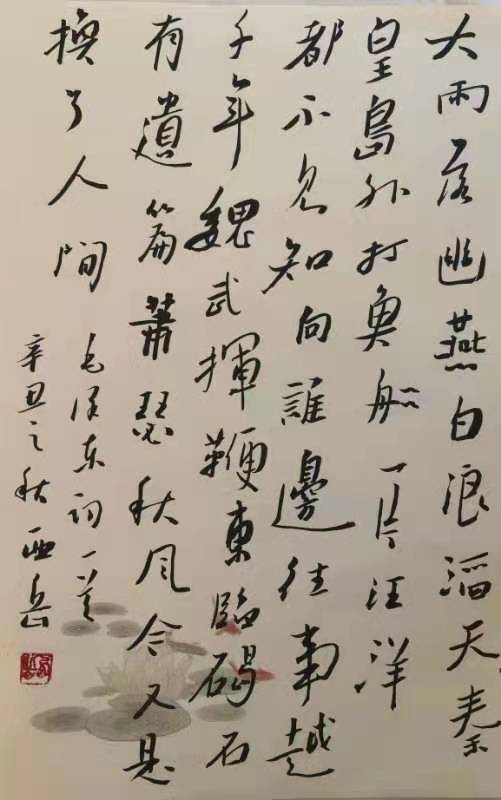 大雨落幽燕白浪滔天秦
皇島外打魚船一片汪洋
都不見知向誰邊往事越
千年魏武揮鞭東臨碣石
有遺篇蕭瑟秋風今又是
換了人間
毛泽东词一首
辛丑之秋西岳